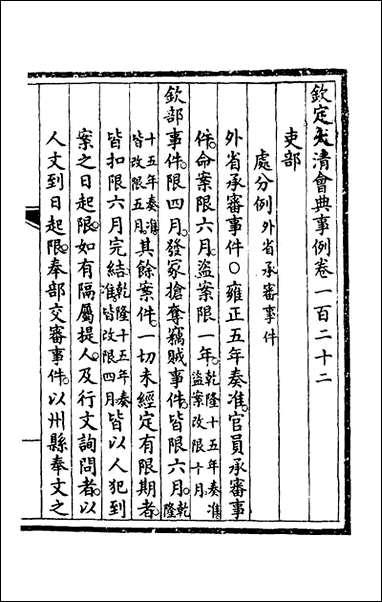 欽定大清會典事例卷一百二十二
吏部
處分例外省承審事件
外省承審事件○雍正五年奏准。官員承審事
件。命案限六月。盜案限一年。乾隆十五年奏准盜案改限十月
欽部事件。限四月。發冢搶奪竊賊事件。皆限六月。乾隆
十五年奏准皆改限五月。其餘案件。一切未經定有限期者。
皆扣限六月完結。乾隆十五年奏准皆改限四月皆以人犯到
案之日起限。如有隔屬提人。及行文詢問者。以
人文到日起限。奉部交審事件。以州縣奉文之